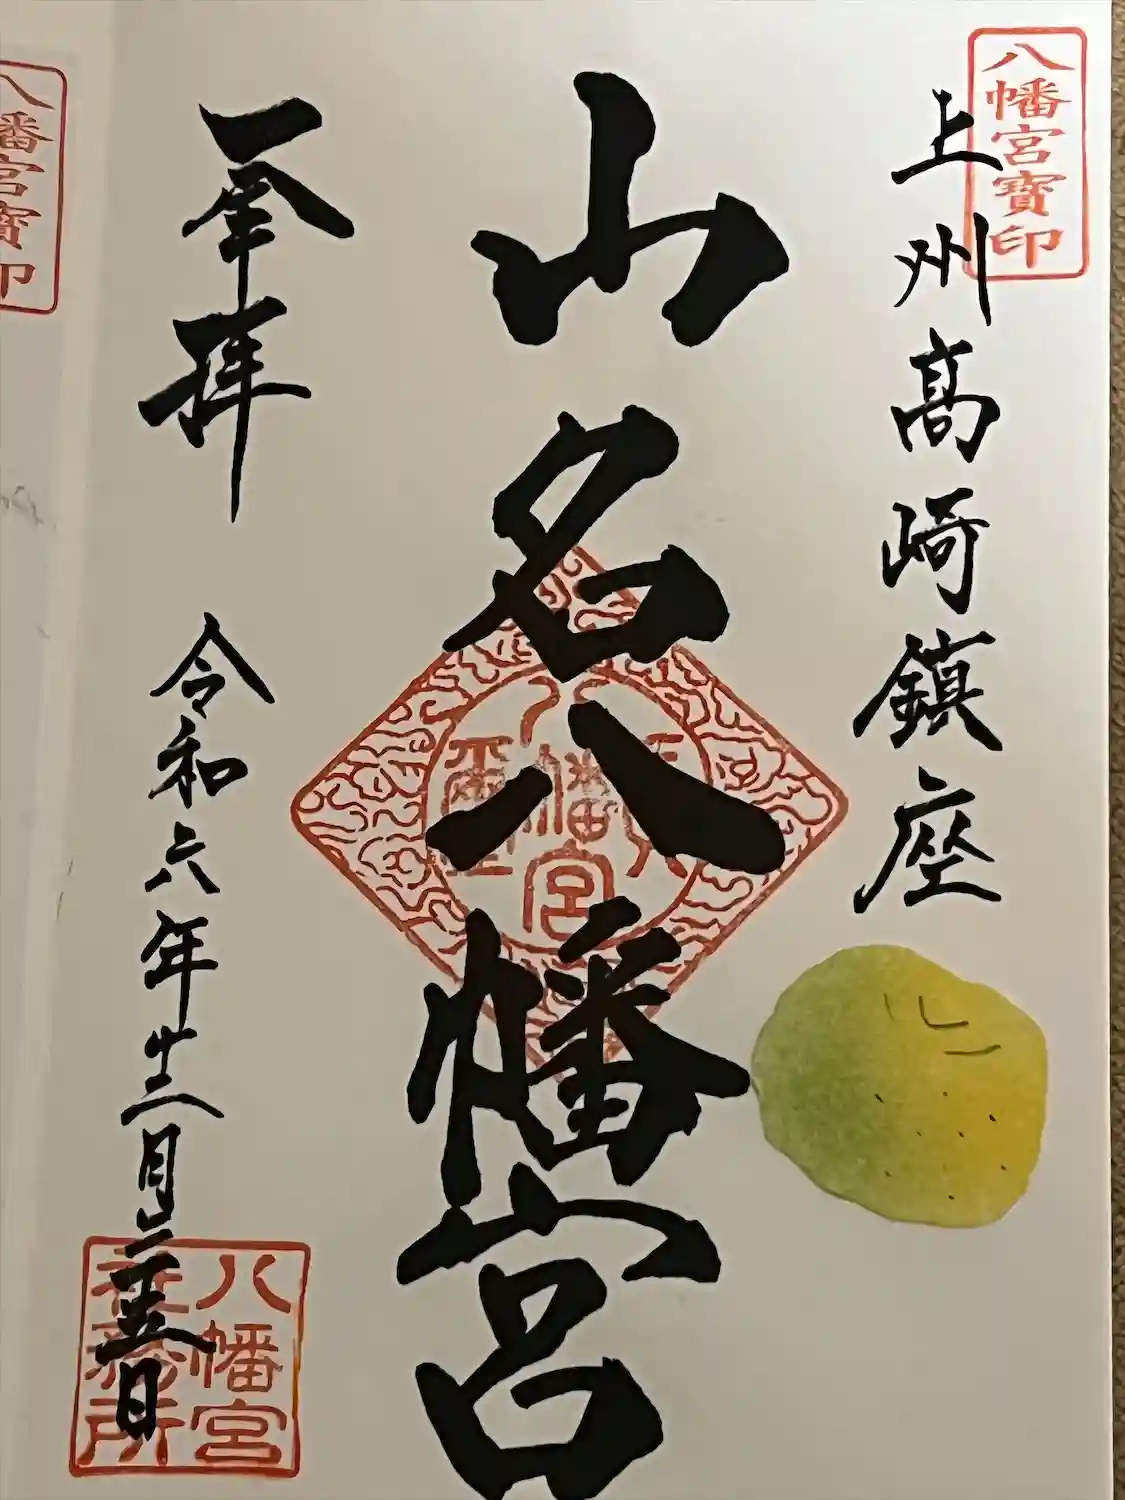 八幡宮寶印
上州髙崎鎮座
山名八幡宮
八幡宮
奉拝
令和六年十二月二十五日
八幡宮
社務所
八幡宮寶印